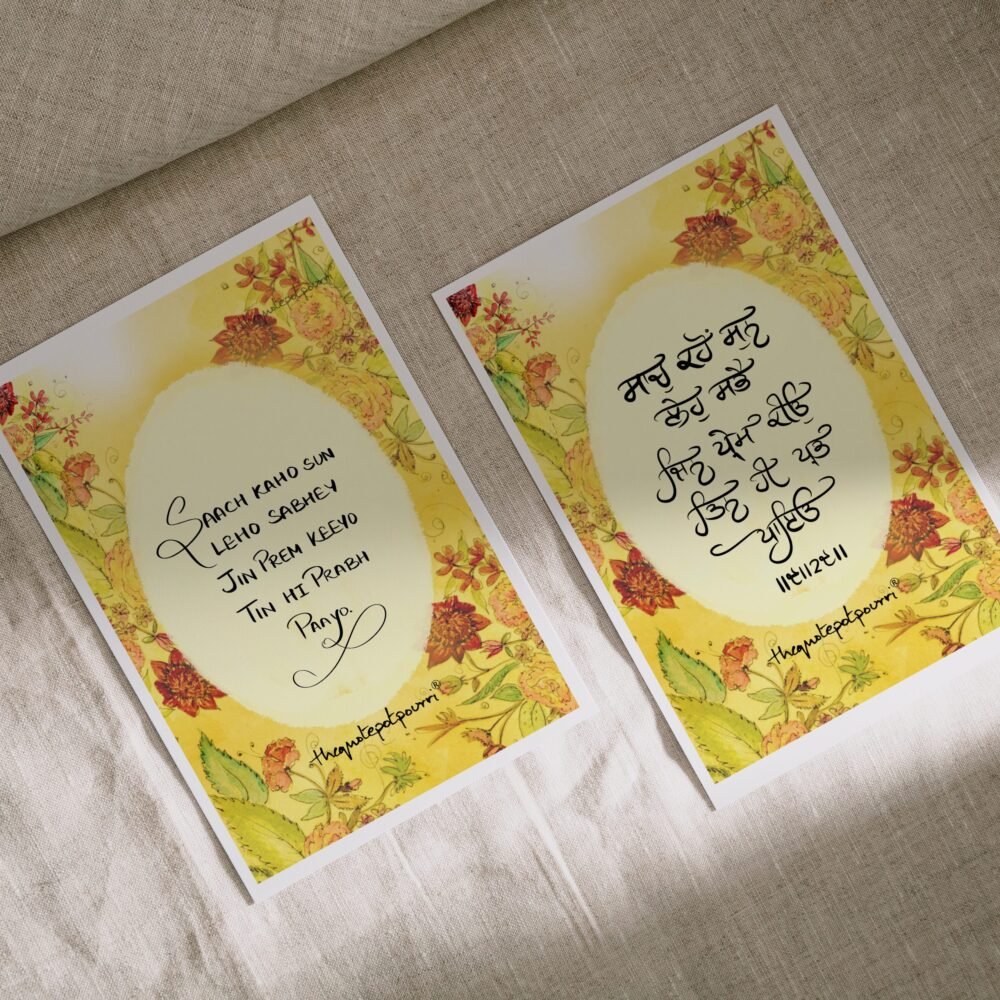 SAACH KAHO SUN
LEHO SABHEY
JIN PREM KEEYO
TIN HI PRABH
PAAYO.
thequotepotpourri®
ਸਾਚੁ ਕਹੌਂ ਸੁਨ
ਲੇਹੁ ਸਭੈ
ਜਿਨ ਪ੍ਰੇਮ ਕੀਓ
ਤਿਨ ਹੀ ਪ੍ਰਭ
ਪਾਇਓ
॥੯॥੨੯॥
thequotepotpourri®